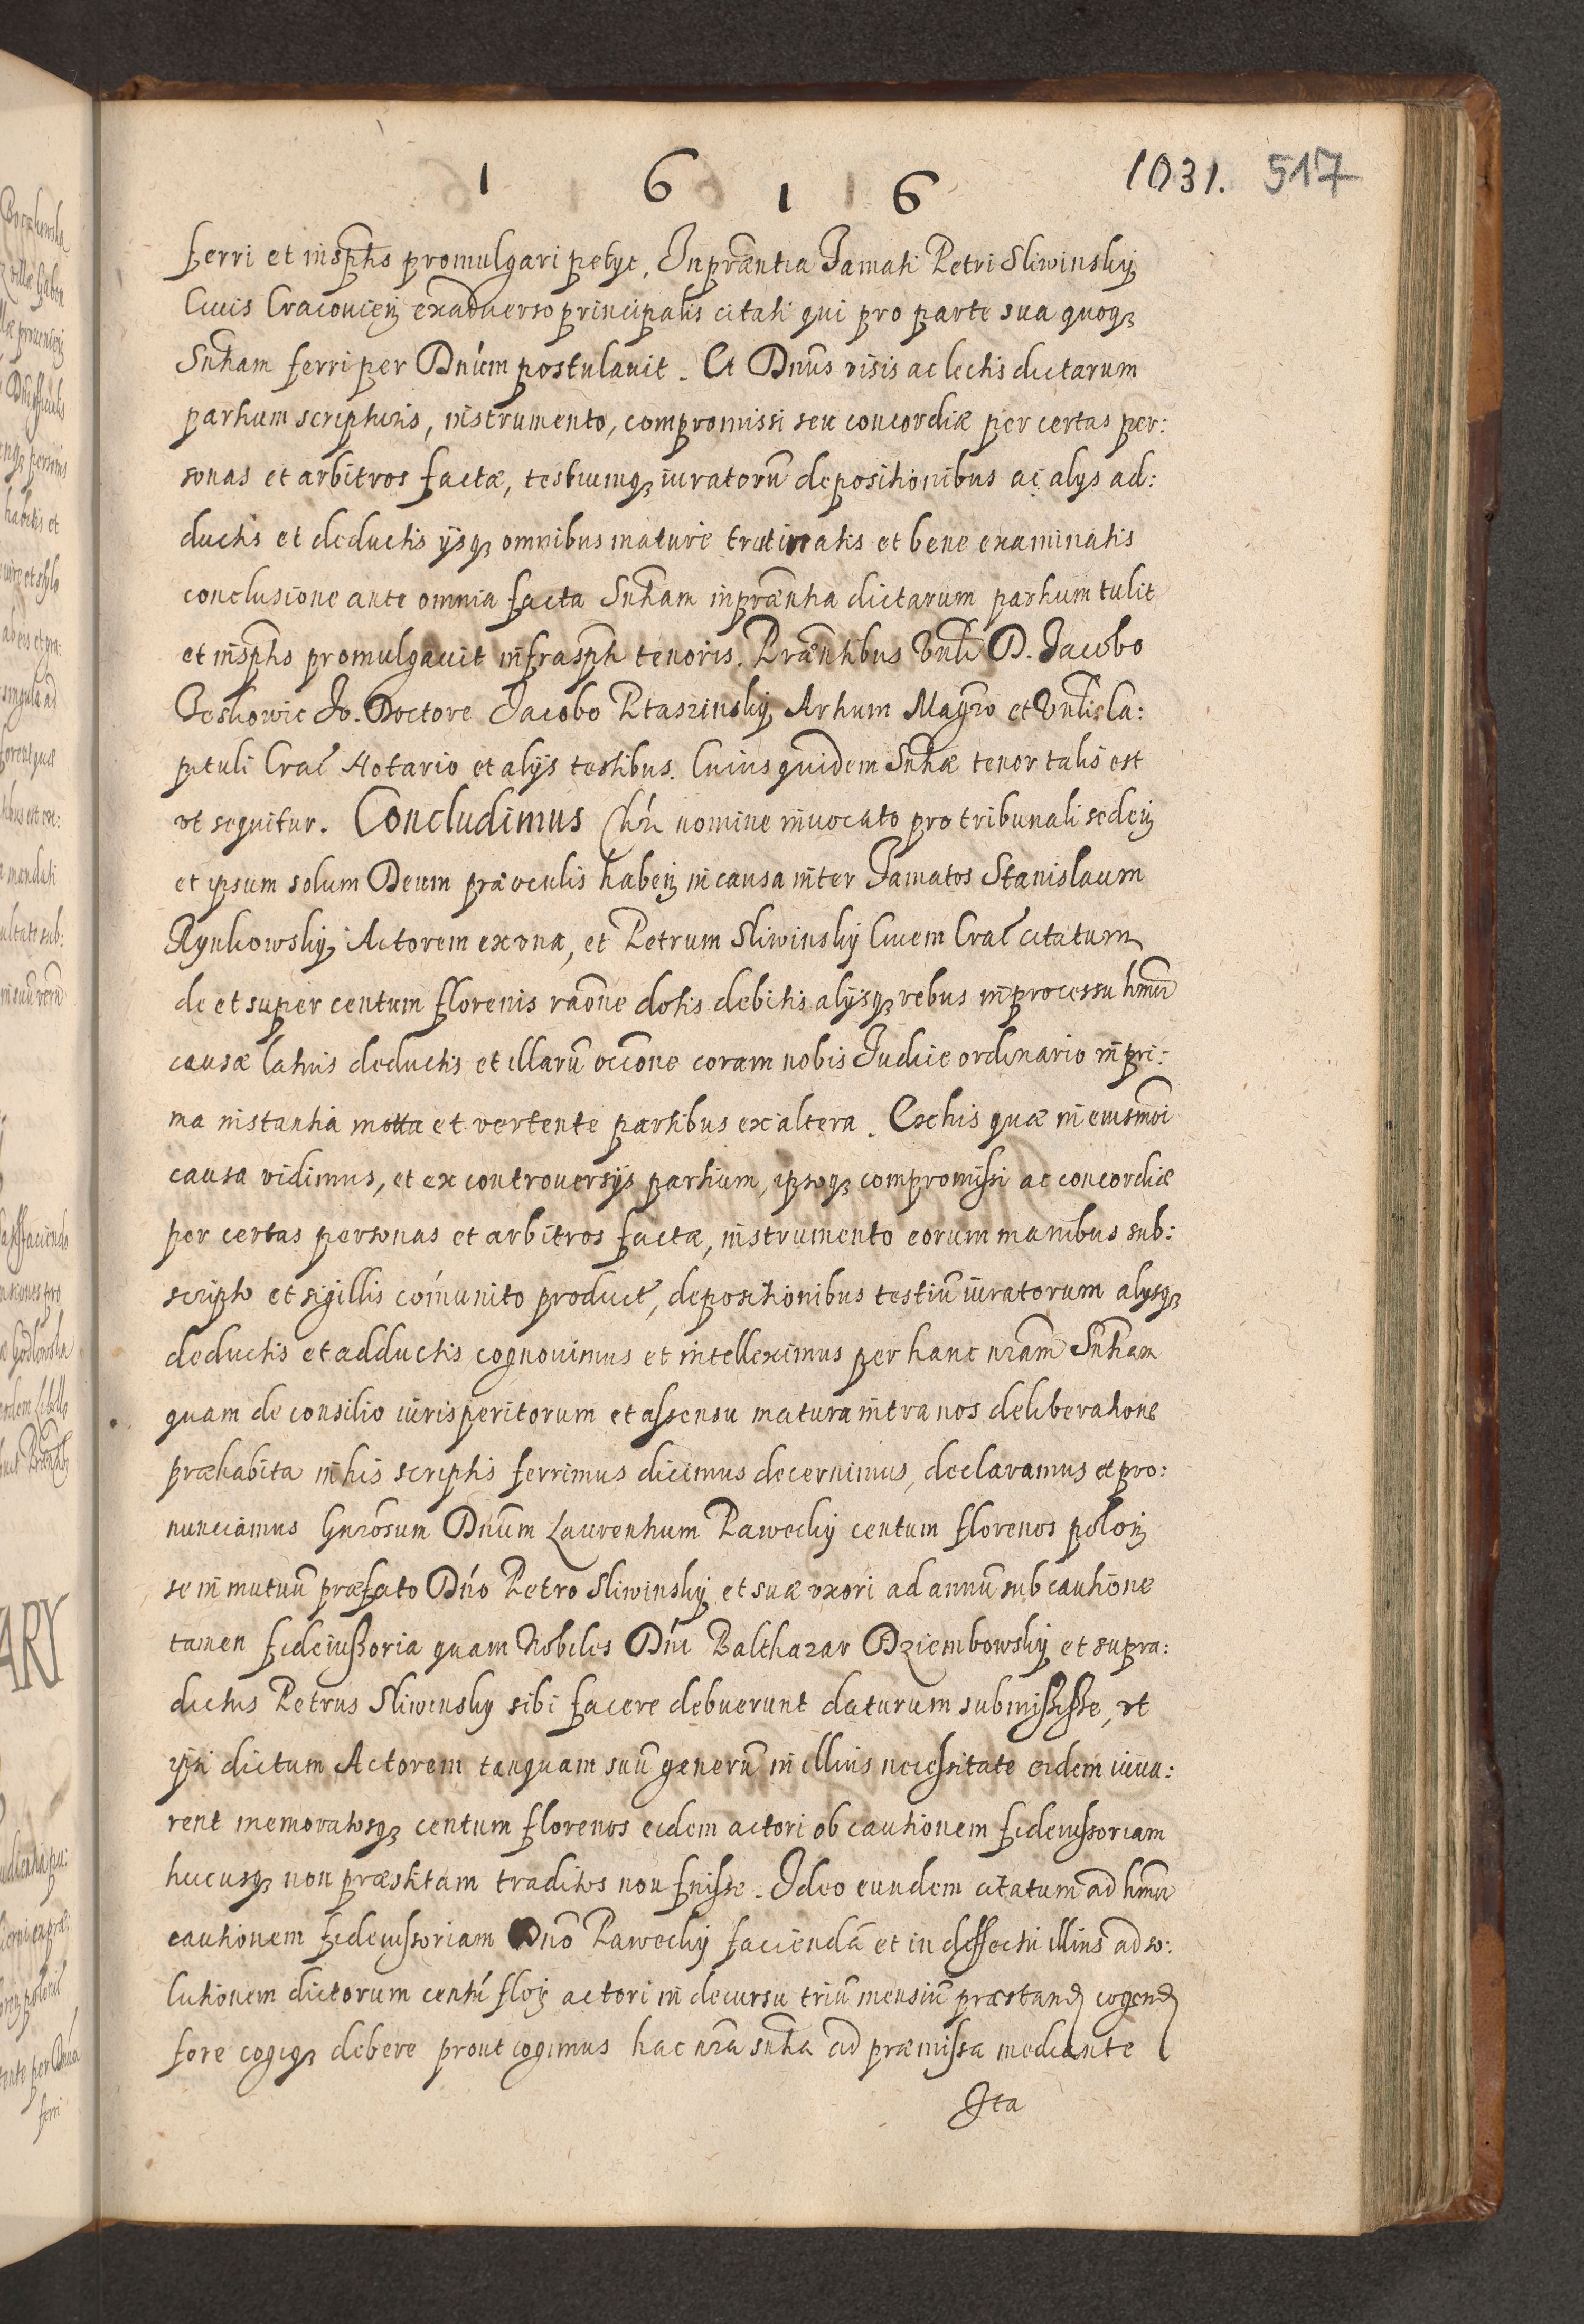 1 6 1 6
1031. 517
ferri et in sp̃tis promulgari petyt. In p̃raentia Famati Petri Sliwinsky
Ciuis Cracouieñ ex aduerso principalis citati qui pro parte sua quoqȝ
Sñtiam ferri per Dñum postulauit. Et Dñus visis ac lectis dictarum
partium scripturis, instrumento, compromissi seu concordiæ per certas per:
sonas et arbitros factæ, testiumqȝ iuratorũ depositionibus ac alys ad:
ductis et deductis ysqȝ omnibus mature trutinatis et bene examinatis
conclusione ante omnia facta Sñtiam in p̃raentia dictarum partium tulit
et in sp̃tis promulgauit infrasp̃ti tenoris. Præñtibus Vñli D. Jacobo
Jo. Doctore Jacobo Ptaszinsky Artium Magr̃o et Vñlis Ca:
pituli Crac̃ Notario et alys testibus. Cuius quidem Sñtiæ tenor talis est
vt sequitur. Concludimus Chr̃i nomine inuocato pro tribunali sedeñ
et ipsum solum Deum præ oculis habeñ in causa inter Famatos Stanislaum
Rynkowsky Actorem ex vna, et Petrum Sliwinsky Ciuem Crac̃ citatum
de et super centum florenis rãone dotis debitis alysqȝ rebus in processu hm̃oi
causæ latius deductis et illarũ occõne coram nobis Judice ordinario in pri:
ma instantia motta et vertente partibus ex altera. Ex his quæ in eiusmõi
causa vidimus, et ex controuersys partium, ipsoqȝ compromissi ac concordiæ
per certas personas et arbitros factæ, instrumento eorum manibus sub:
scripto et sigillis com̃unito product̃, depositionibus testiũ iuratorum alysqȝ
deductis et adductis cognouimus et intelleximus per hanc nr̃am Sñtiam
quam de consilio iurisperitorum et assensu matura intra nos deliberatione
præhabita in his scriptis ferrimus dicimus decernimus, declaramus et pro:
nunciamus Gnr̃osum Dñum Laurentium Pawecky centum florenos poloñ
se in mutuũ præfato Dño Petro Sliwinsky et suæ vxori ad annũ sub cautione
tamen fideiussoria quam Nobiles Dñi Balthazar Dziembowsky et supra:
dictus Petrus Sliwinsky sibi facere debuerunt daturum submisisse, vt
ipsi dictum Actorem tanquam suũ generũ in illius necessitate eidem iuua:
rent memoratosqȝ centum florenos eidem actori ob cautionem fideiussoriam
hucusqȝ non præstitam traditos non fuisse. Ideo eundem citatum ad hm̃oi
cautionem fideiussoriam Dño Pawecky faciendã et in deffectu illius ad so:
lutionem dictorum centũ floñ actori in decursu triũ mensiũ præstand cogend
fore cogiqȝ debere prout cogimus hac nr̃a sñtia ad præmissa mediante
Ita